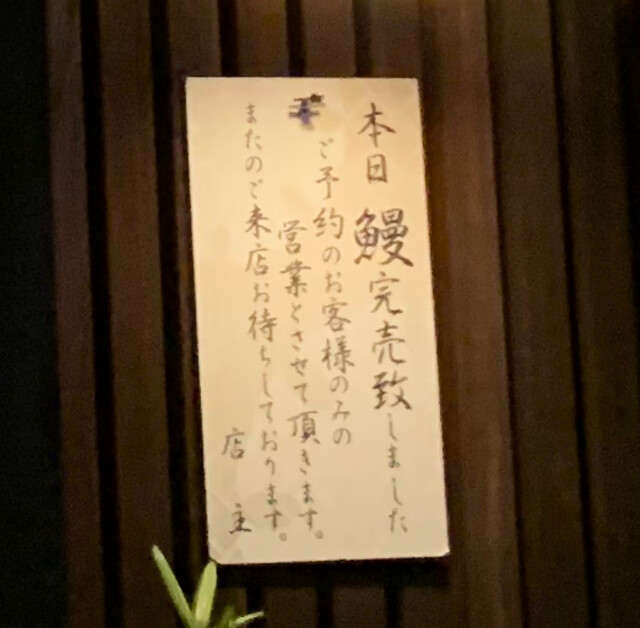 本日鰻完売致しました
ご予約のお客様のみの
営業とさせて頂きます。
またのご来店お待ちしております。
店主